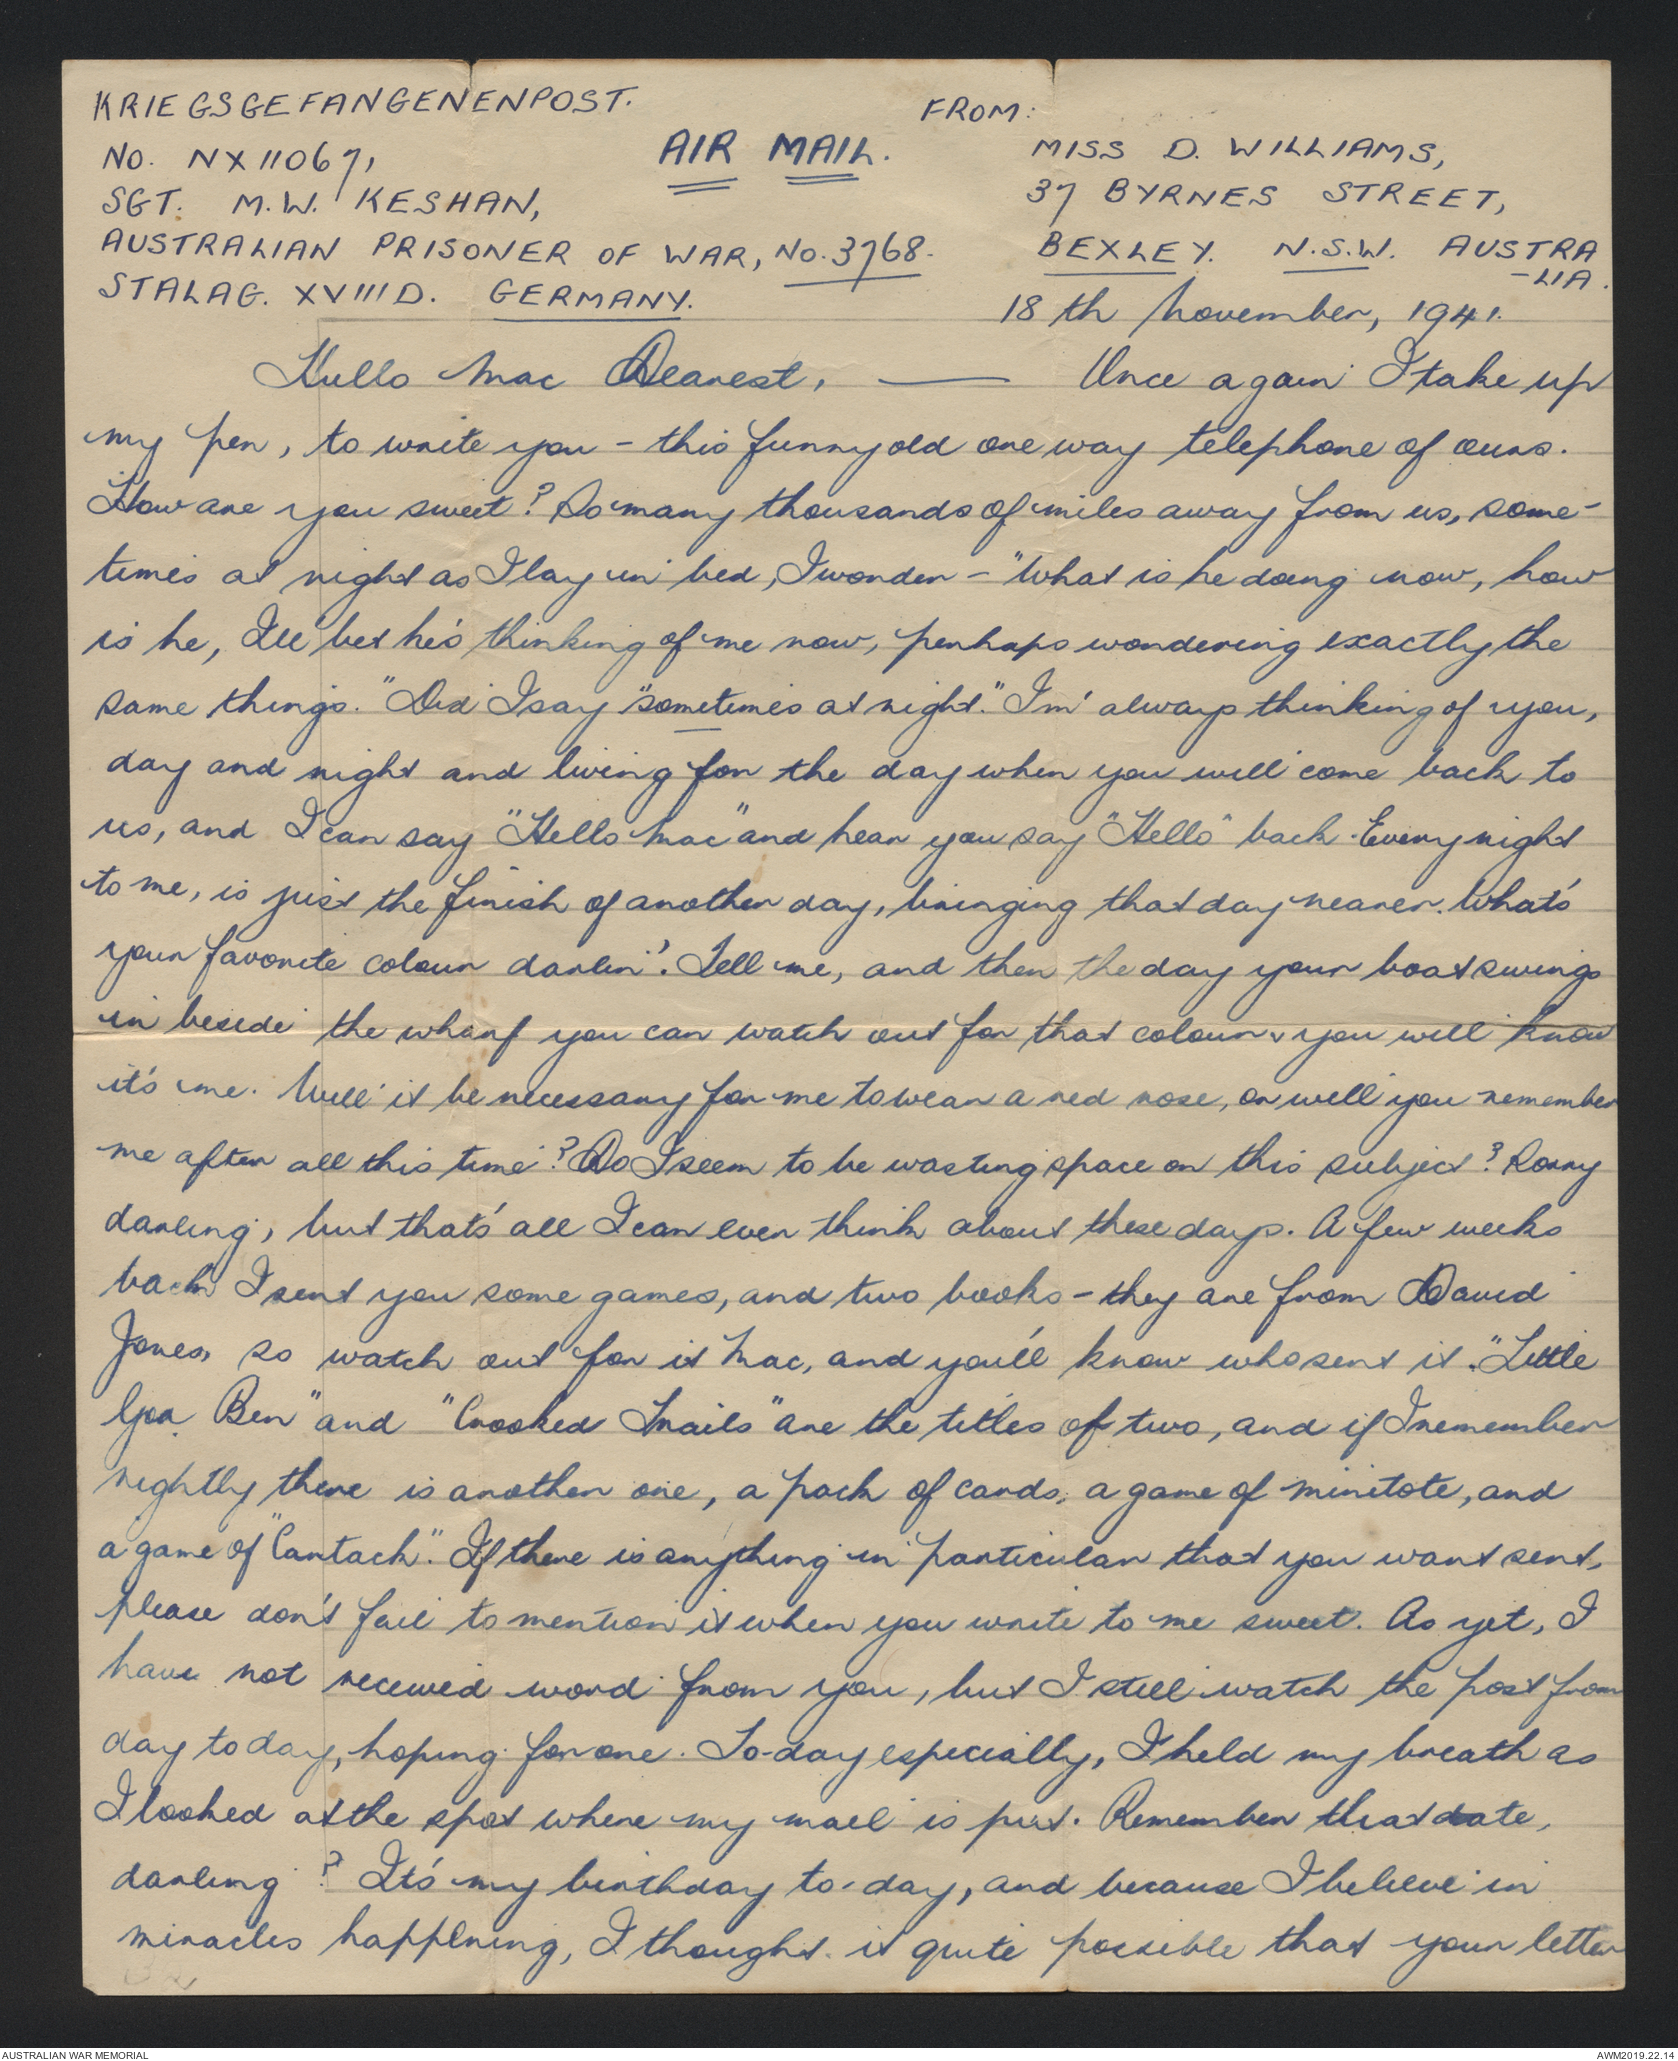 KRIEGSGEFANGENENPOST.
FROM:
NO. NX11067,
AIR MAIL.
MISS D. WILLIAMS,
SGT. M.W. KESHAN,
37 BYRNES STREET,
AUSTRALIAN PRISONER OF WAR, NO. 3768.
BEXLEY. N.S.W. AUSTRA
-LIA.
STALAG. XVIIID. GERMANY.
18th November, 1941.
Hullo Mac Dearest, — Once again I take up
my pen, to write you - this funny old one way telephone of ours.
How are you sweet? So many thousands of miles away from us, some-
times at night as I lay in bed, I wonder - "What is he doing now, how
is he, I'll bet he's thinking of me now, perhaps wondering exactly the
same things." Did I say "sometimes at night." I'm always thinking of you,
day and night and living for the day when you will come back to
us, and I can say "Hello Mac" and hear you say "Hello" back. Every night
to me, is just the finish of another day, bringing that day nearer. What's
your favorite colour darlin'? Tell me, and then the day your boat swings
in beside the wharf you can watch out for that colour & you will know
it's me. Will it be necessary for me to wear a red nose, or will you remember
me after all this time? Do I seem to be wasting space on this subject? Sorry
darling, but that's all I can ever think about these days. A few weeks
back I sent you some games, and two books - they are from David
Jones, so watch out for it Mac, and you'll know who sent it. "Little
Ben" and "Crooked Trails" are the titles of two, and if I remember
rightly there is another one, a pack of cards, a game of minitote, and
a game of "Cantack". If there is anything in particular that you want sent,
please don't fail to mention it when you write to me sweet. As yet, I
have not received word from you, but I still watch the post from
day to day, hoping for one. To-day especially, I held my breath as
I looked at the spot where my mail is put. Remember that date,
darling? It's my birthday to-day, and because I believe in
miracles happening, I thought it quite possible that your letter
AUSTRALIAN WAR MEMORIAL
AWM2019.22.14